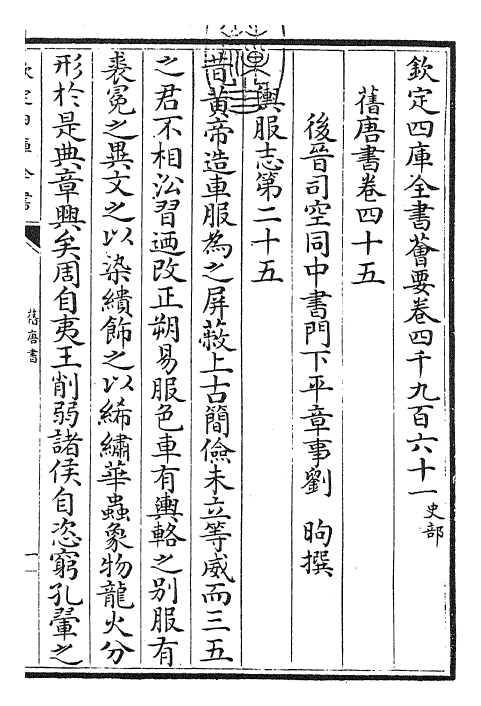 欽定四庫全書薈要卷四千九百六十一史部
舊唐書卷四十五
後晉司空同中書門下平章事劉 昫撰
輿服志第二十五
昔黄帝造車服為之屏蔽上古簡儉未立等威而三五
之君不相㳂習迺改正朔易服色車有輿輅之别服有
裘冕之異文之以染繢飾之以絺繡華蟲象物龍火分
形於是典章興矣周自夷王削弱諸侯自恣窮孔翬之
欽定四庫全書
舊唐書
一